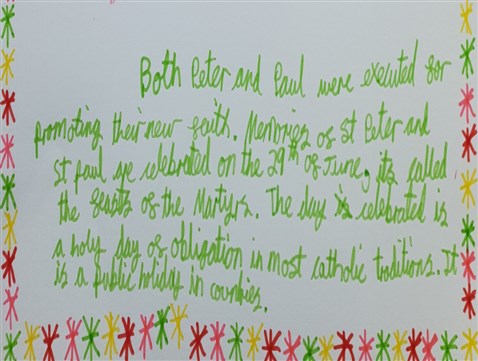 Both Peter and Paul were executed for
promoting their new faith. Memories of St Peter and
St Paul are celebrated on the 29th of June, its called
the feasts of the Martyrs. The day is celebrated is
a holy day of obligation in most catholic traditions. It
is a public holiday in countries.